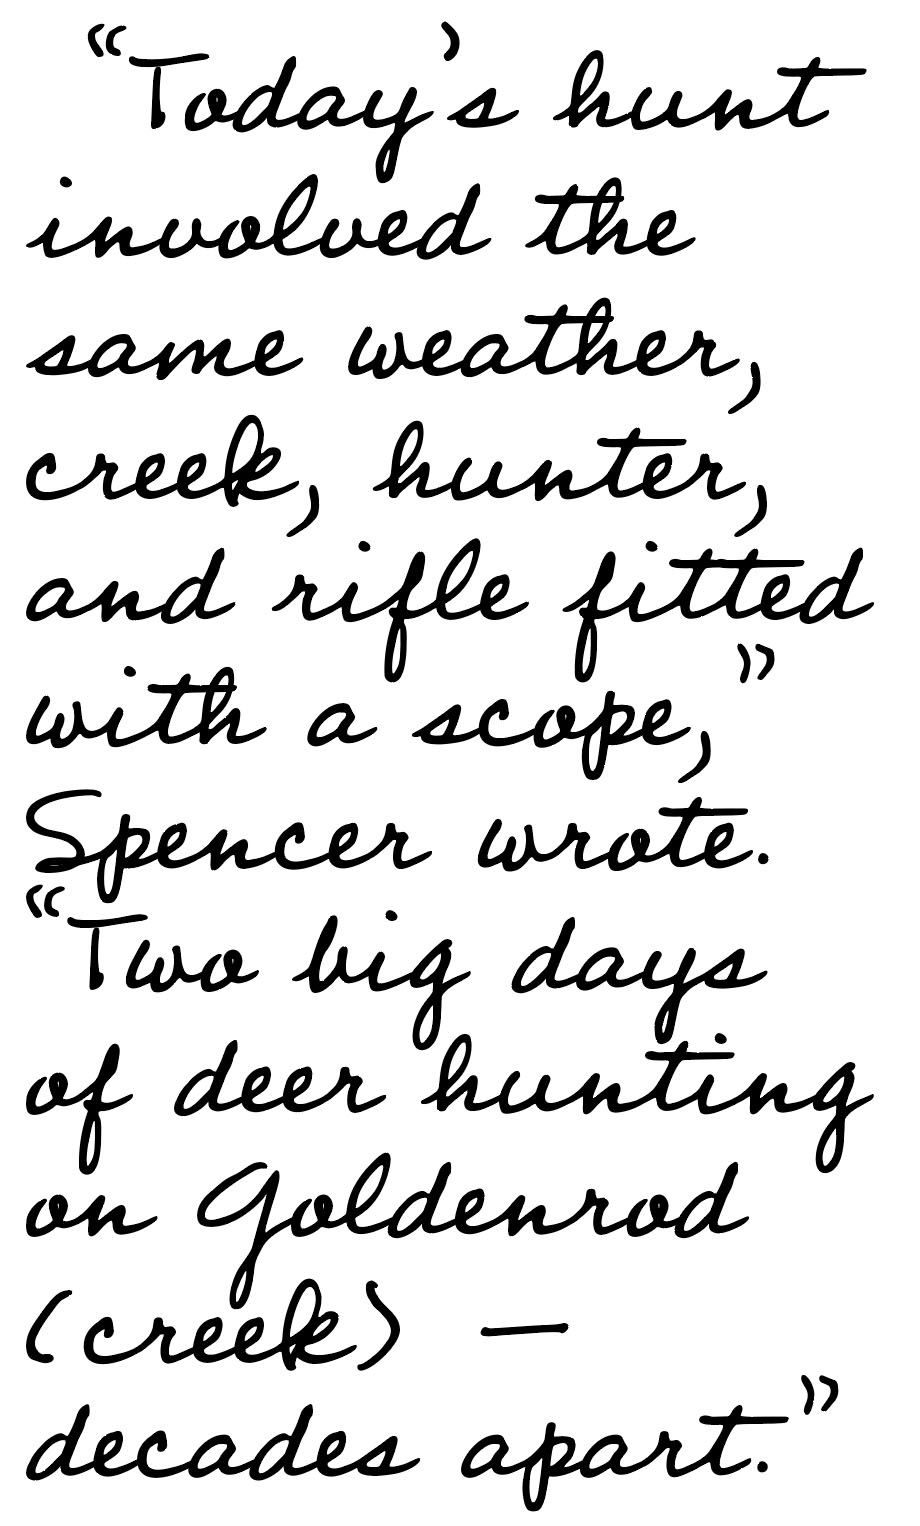 “Today’s hunt
involved the
same weather,
creek, hunter,
and rifle fitted
with a scope,”
Spencer wrote.
“Two big days
of deer hunting
on Goldenrod
(creek) —
decades apart.”